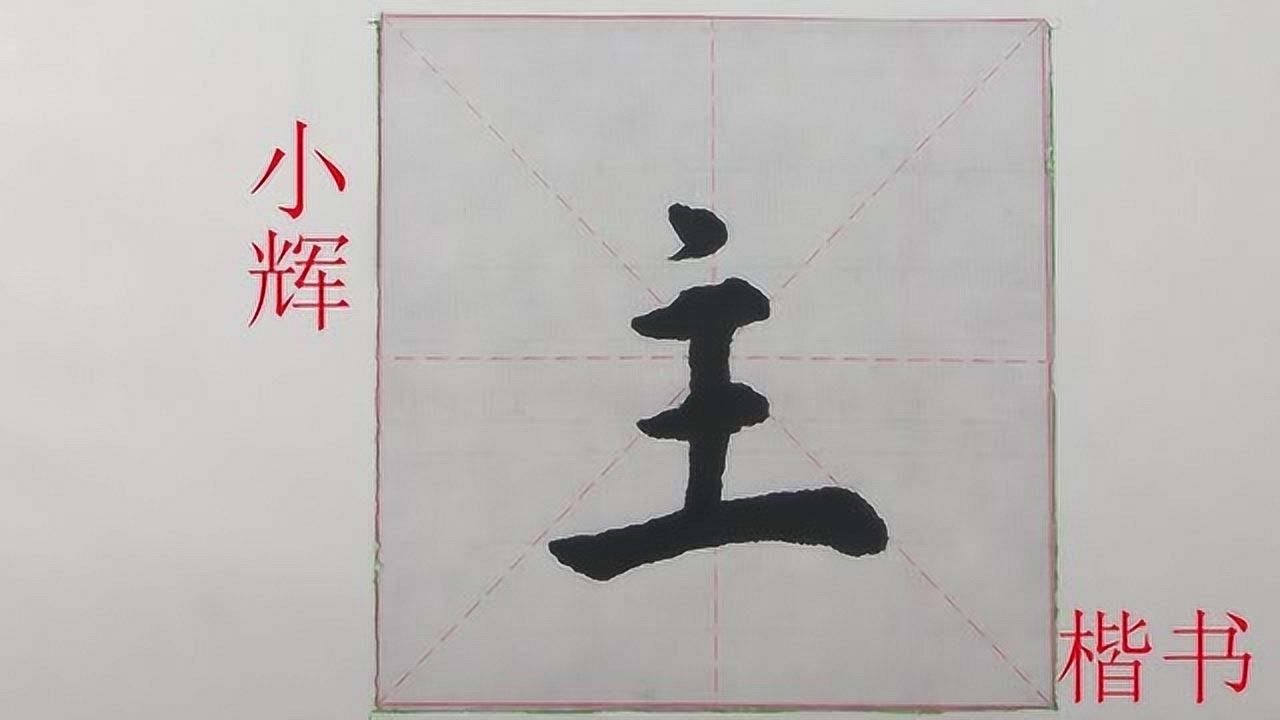 小辉
主
楷书